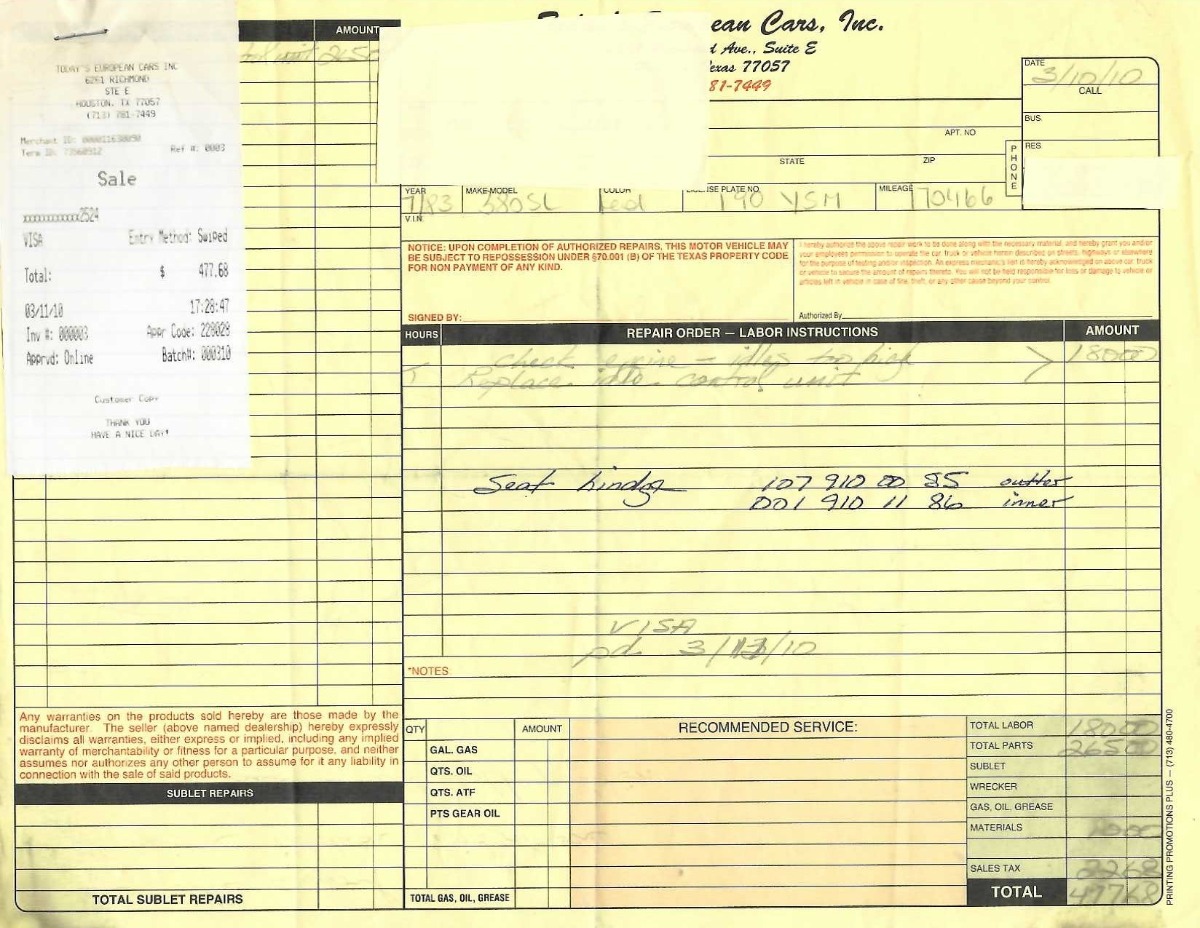 TODAY'S EUROPEAN CARS INC
6261 RICHMOND
STE E
HOUSTON, TX 77057
(713) 781-7449
Merchant ID:
Term ID:
Ref #: 0003
Sale
xxxxxxxxxxxx2524
VISA Entry Method: Swiped
Total: $ 477.68
03/11/10 17:28:47
Inv #: 000003 Appr Code: 229029
Apprvd: Online Batch#: 000310
Customer Copy
THANK YOU
HAVE A NICE DAY!
AMOUNT
unit 2650
ean Cars, Inc.
d Ave., Suite E
exas 77057
81-7449
DATE
3/10/10
CALL
BUS.
RES.
PHONE
APT. NO
STATE ZIP
YEAR MAKE-MODEL COLOR LICENSE PLATE NO. MILEAGE
7/83 380SL red 190 VSM 70466
V.I.N.
NOTICE: UPON COMPLETION OF AUTHORIZED REPAIRS, THIS MOTOR VEHICLE MAY
BE SUBJECT TO REPOSSESSION UNDER §70.001 (B) OF THE TEXAS PROPERTY CODE
FOR NON PAYMENT OF ANY KIND.
SIGNED BY:
I hereby authorize the above repair work to be done along with the necessary material, and hereby grant you and/or
your employees permission to operate the car, truck or vehicle herein described on streets, highways or elsewhere
for the purpose of testing and/or inspection. An express mechanic's lien is hereby acknowledged on above car, truck
or vehicle to secure the amount of repairs thereto. You will not be held responsible for loss or damage to vehicle or
articles left in vehicle in case of fire, theft, or any other cause beyond your control.
Authorized By
HOURS REPAIR ORDER — LABOR INSTRUCTIONS AMOUNT
check engine - idles too high 18000
Replace idle control unit
Seat hindge 107 910 00 85 outter
001 910 11 86 inner
VISA
pd 3/ /10
*NOTES
Any warranties on the products sold hereby are those made by the
manufacturer. The seller (above named dealership) hereby expressly
disclaims all warranties, either express or implied, including any implied
warranty of merchantability or fitness for a particular purpose, and neither
assumes nor authorizes any other person to assume for it any liability in
connection with the sale of said products.
SUBLET REPAIRS
TOTAL SUBLET REPAIRS
QTY AMOUNT
GAL. GAS
QTS. OIL
QTS. ATF
PTS GEAR OIL
TOTAL GAS, OIL, GREASE
RECOMMENDED SERVICE:
TOTAL LABOR 18000
TOTAL PARTS 26500
SUBLET
WRECKER
GAS, OIL, GREASE
MATERIALS 1000
SALES TAX 2268
TOTAL 47768
PRINTING PROMOTIONS PLUS — (713) 480-4700